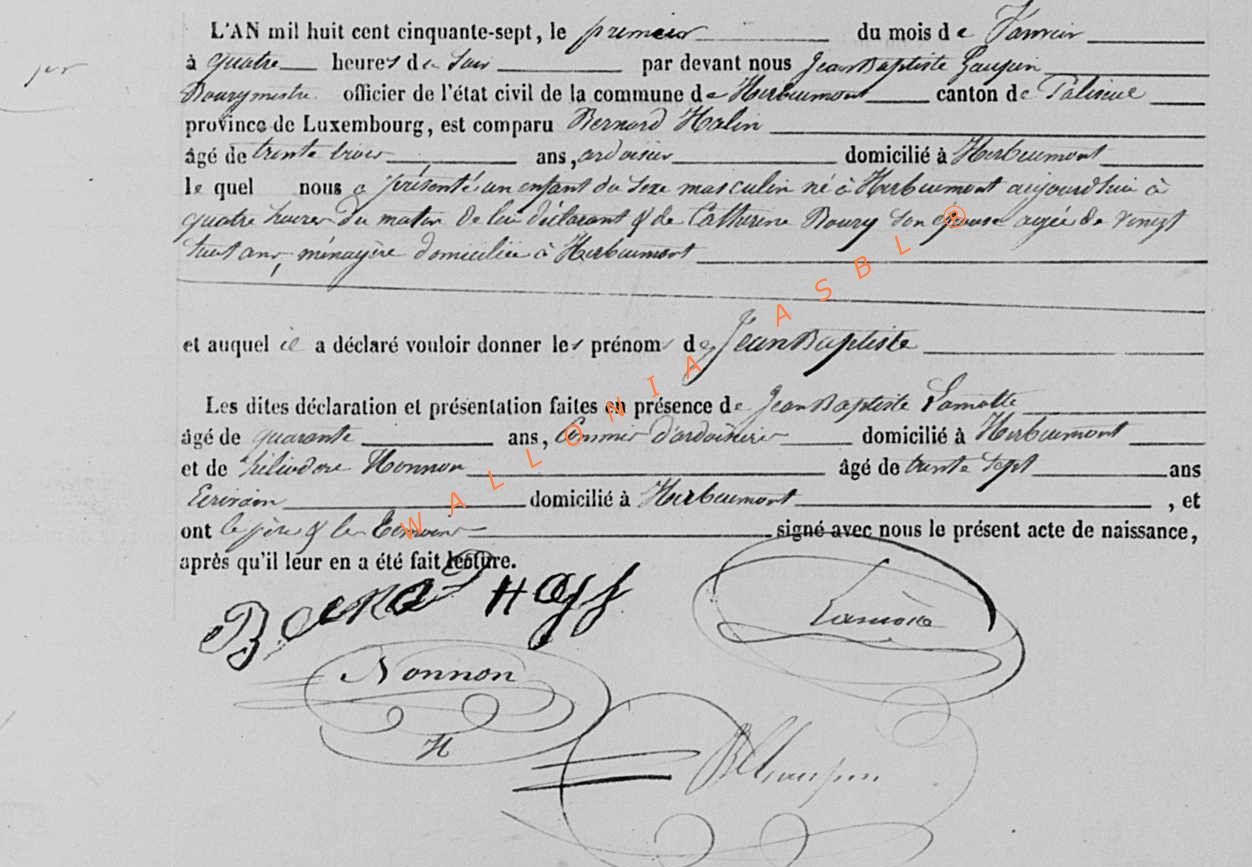 L'AN mil huit cent cinquante-sept, le premier du mois de Janvier
à quatre heures de Soir par devant nous Jean Baptiste
Bourgmestre officier de l'état civil de la commune de Herbeumont canton de Paliseul
province de Luxembourg, est comparu Bernard Halin
âgé de trente trois ans, ardoisier domicilié à Herbeumont
le quel nous a présenté un enfant du sexe masculin né à Herbeumont aujourd'hui à
quatre heures du matin de lui déclarant & de Catherine Boury son épouse agée de vingt
huit ans, ménagère domiciliée à Herbeumont
et auquel il a déclaré vouloir donner les prénoms de Jean Baptiste
Les dites déclaration et présentation faites en présence de Jean Baptiste Lamotte
âgé de quarante ans, Commis d'ardoisière domicilié à Herbeumont
et de Héliodore Nonnon âgé de trente sept ans
Ecrivain domicilié à Herbeumont , et
ont le père & les témoins signé avec nous le présent acte de naissance,
après qu'il leur en a été fait lecture.
Nonnon
H
WALLONIA ASBL ®